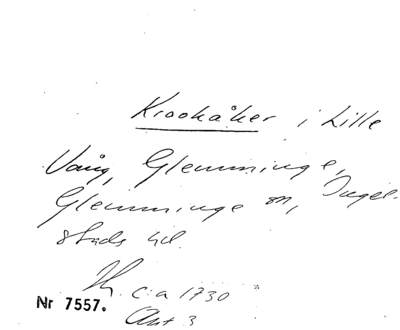 Krookåker i Lille
Vång, Glemminge,
Glemminge sn, Ingel-
stads hd.
c:a 1730
Nr 7557.
Akt 3